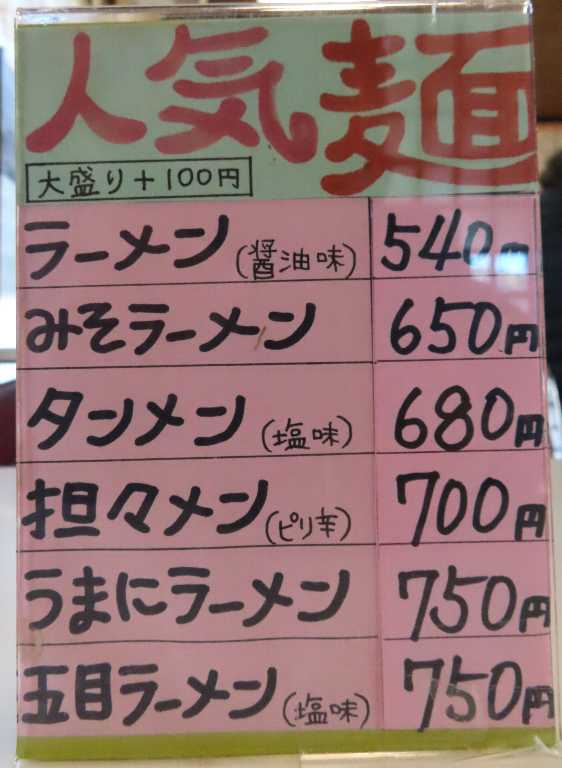 人気麺
大盛り+100円
ラーメン(醤油味) 540円
みそラーメン 650円
タンメン(塩味) 680円
担々メン(ピリ辛) 700円
うまにラーメン 750円
五目ラーメン(塩味) 750円